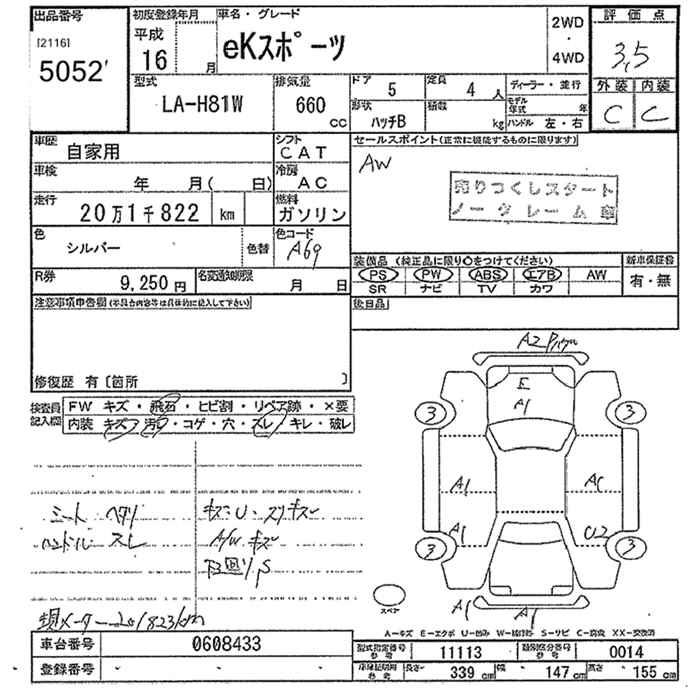 出品番号 初度登録年月 車名・グレード 2WD・4WD 評価点
[2116] 5052' 平成 16 月 eKスポーツ 3,5
型式 排気量 ドア 5 定員 4人 ディーラー・並行 外装 内装
LA-H81W 660 CC 形状 ハッチB 積載 kg モデル年式 年 ハンドル 左・右 C C
車歴 自家用 シフト CAT セールスポイント(正常に機能するものに限ります)
車検 年 月( 日) 冷房 AC AW
走行 20万1千822 km 燃料 ガソリン 売りつくしスタート
ノークレーム
色 シルバー 色替 色コード A69
装備品 (純正品に限り○をつけてください) 新車保証書
R券 9,250円 名変通知期限 月 日 PS PW ABS エアB AW 有・無
SR ナビ TV カワ
注意事項申告欄(不具合内容等は具体的に記入して下さい) 後日品
修復歴 有〔箇所 〕
検査員記入欄 FW キズ・飛石・ヒビ割・リペア跡・×要
内装 キズ・汚レ・コゲ・穴・スレ・キレ・破レ
A2
E
A1
3 3
A1 A1
A1 U2
3 3
スペア
A1 A1
シート ヘタリ キズ・U・スリキズ
ハンドル スレ A/W キズ
下回り S
現メーター 201823km
A-キズ E-エクボ U-凹み W-補修跡 S-サビ C-腐食 XX-交換済
車台番号 0608433 型式指定番号 参考 11113 類別区分番号 参考 0014
登録番号 - - - 車検証明用 参考 長さ 339 cm 幅 147 cm 高さ 155 cm